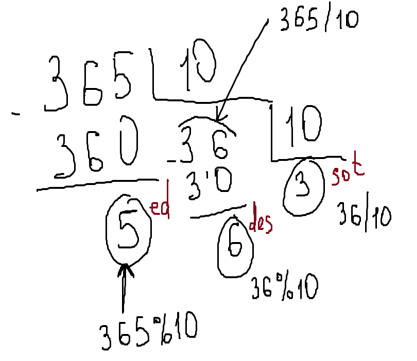 365/10
365 10
- 360 - 36 10
5 ed 30 3 sot
6 des 36/10
36%10
365%10